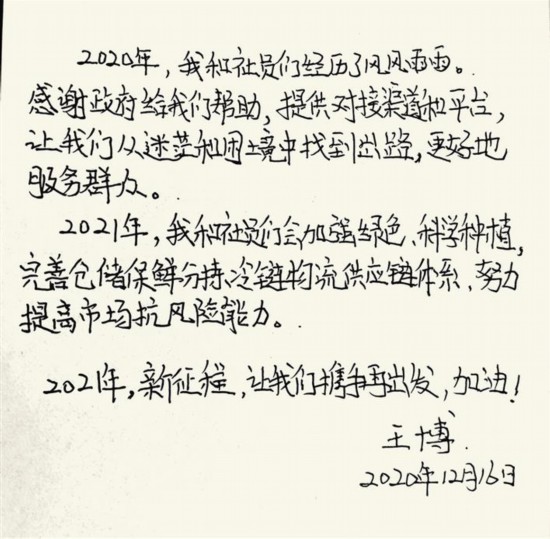 2020年,我和社员们经历了风风雨雨。
感谢政府给我们帮助,提供对接渠道和平台,
让我们从迷茫和困境中找到出路,更好地
服务群众。
2021年,我和社员们会加强绿色、科学种植,
完善仓储保鲜分拣、冷链物流供应链体系,努力
提高市场抗风险能力。
2021年,新征程,让我们携手再出发,加油!
王博
2020年12月16日